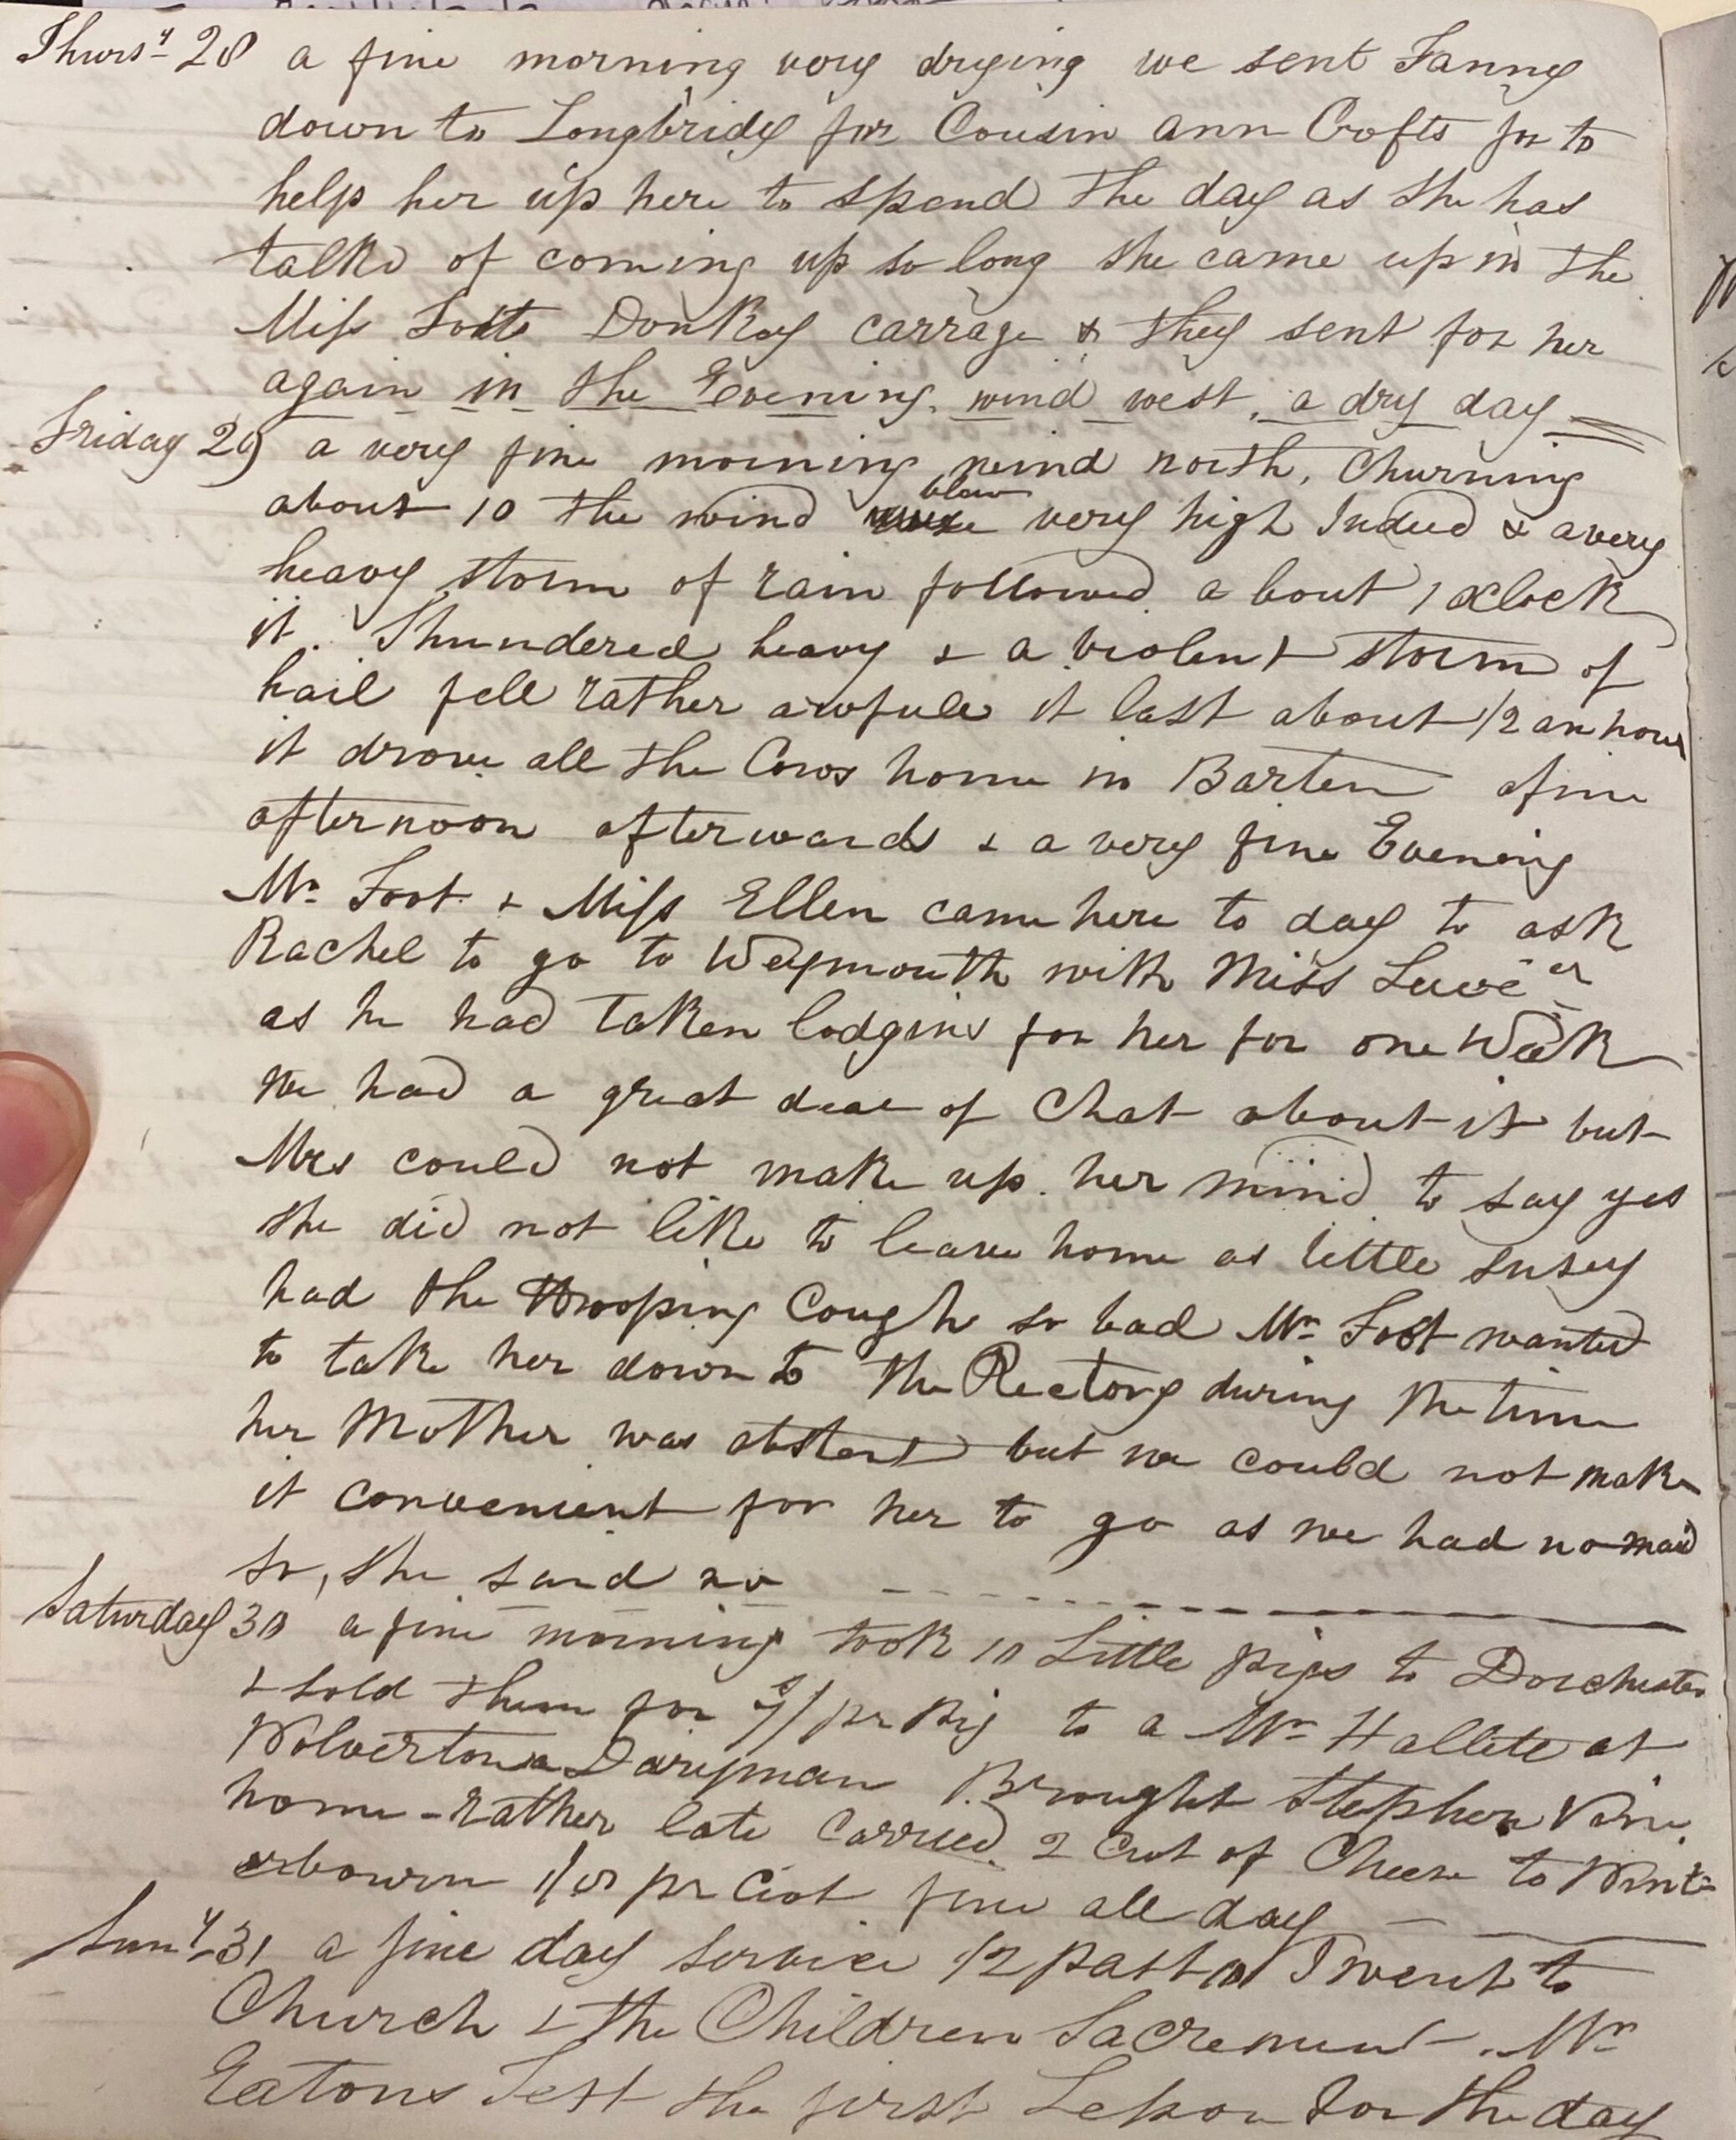 Thursy 28 a fine morning very drying we sent Fanny
down to Longbridy for Cousin ann Crofts for to
help her up here to spend the day as she has
talkd of coming up so long she came up in the
Miss Foots Donkey carrage & they sent for her
again in the Evening. wind west, a dry day
Friday 29 a very fine morning wind north, Churning
about 10 the wind blew very high Indeed & a very
heavy storm of rain followed about 1 oclock
it Thundered heavy & a violent storm of
hail fell rather awfule it last about 1/2 an hour
it drove all the Cows home in Barten afine
afternoon afterwards & a very fine Evening
Mr Foot & Miss Ellen came here to day to ask
Rachel to go to Weymouth with Miss
as he had taken lodgins for her for one Week
we had a great deal of Chat about it but
Mrs could not make up her mind to say yes
she did not like to leave home as little susey
had the Hooping Cough so bad Mr Foot wanted
to take her down to the Rectory during the time
her Mother was abstent but we could not make
it convenient for her to go as we had no maid
so, she said no
Saturday 30 a fine morning took 10 Little pigs to Dorchester
& sold them for pr Pig to a Mr Hallete at
Wolverton a Dairyman Brought Stephen Vine
home - rather late carried 2 Cwt of Cheese to Wint-
erbourn pr Cwt fine all day
Suny 31 a fine day service 1/2 past 10 I went to
Church & the Children Sacrement - Mr
Eatons Test the first Lesson for the day